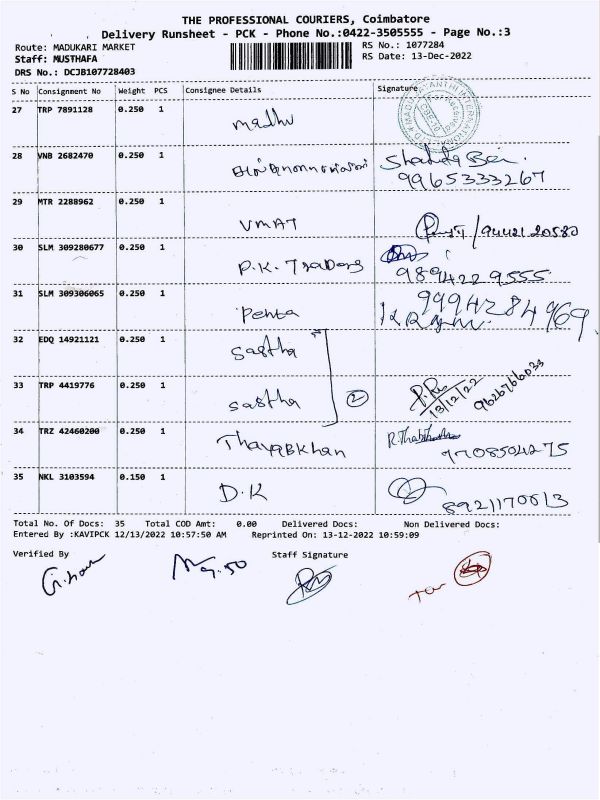 THE PROFESSIONAL COURIERS, Coimbatore
Delivery Runsheet - PCK - Phone No.:0422-3505555 - Page No.:3
Route: MADUKARI MARKET RS No.: 1077284
Staff: MUSTHAFA RS Date: 13-Dec-2022
DRS No.: DCJB107728403
S No Consignment No Weight PCS Consignee Details Signature
27 TRP 7891128 0.250 1 Madhu
28 VNB 2682470 0.250 1
9965333267
29 MTR 2288962 0.250 1 VMAT
94421 20580
30 SLM 309280677 0.250 1 P.K. Traders
9894229555
31 SLM 309306065 0.250 1 Penta
9994284969
32 EDQ 14921121 0.250 1 Sastha
33 TRP 4419776 0.250 1 Sastha 2
13/12/22 9626766033
34 TRZ 42460200 0.250 1 Thayabkhan
9708504275
35 NKL 3103594 0.150 1 D.K
8921170613
Total No. Of Docs: 35 Total COD Amt: 0.00 Delivered Docs: Non Delivered Docs:
Entered By :KAVIPCK 12/13/2022 10:57:50 AM Reprinted On: 13-12-2022 10:59:09
Verified By Staff Signature
9.50